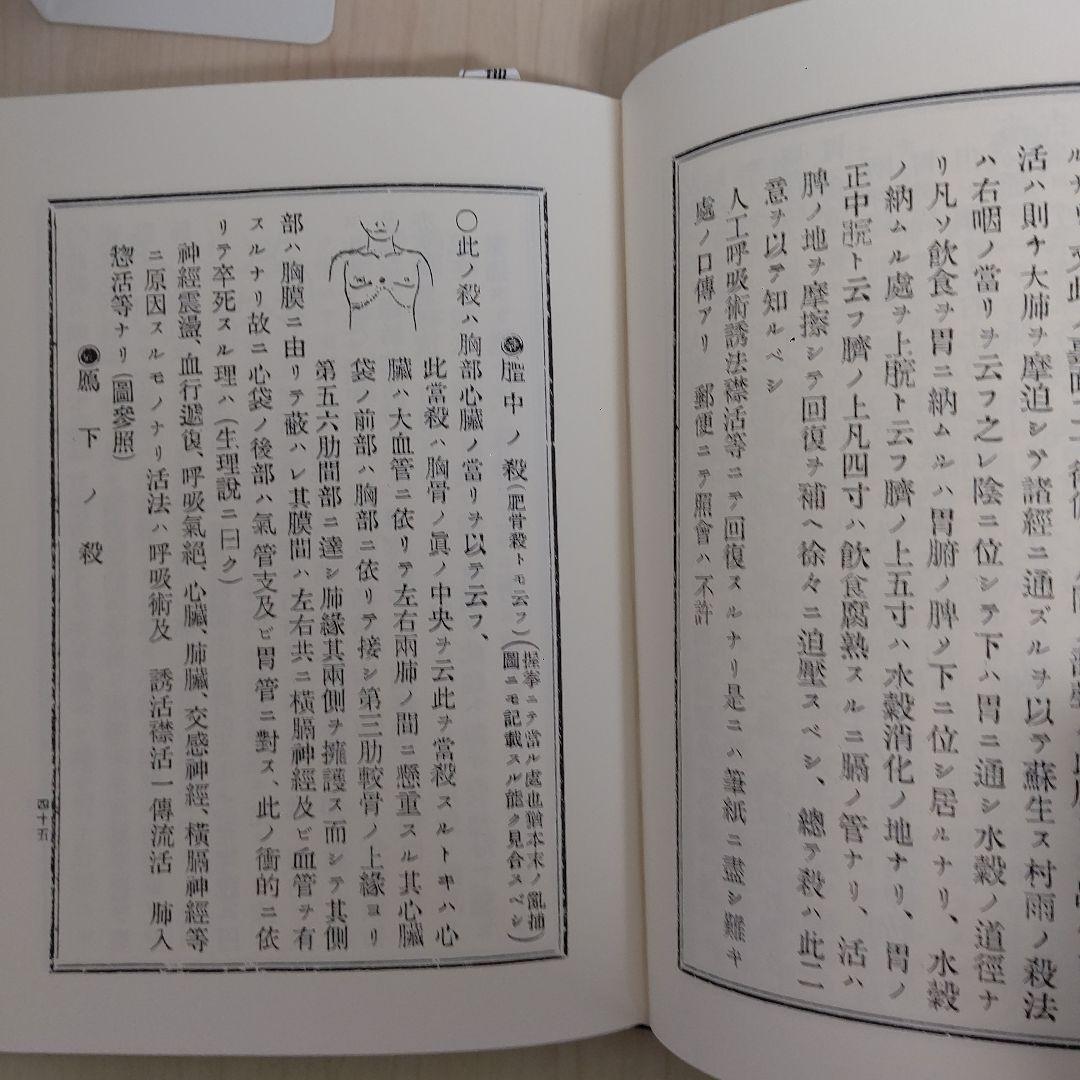 活ハ則チ大肺ヲ摩迫シテ諸經ニ通ズルヲ以テ蘇生ス村雨ノ殺法
ハ右咽ノ當リヲ云フ之レ陰ニ位シテ下ハ胃ニ通シ水穀ノ道徑ナ
リ凡ソ飮食ヲ胃ニ納ムルハ胃腑ノ脾ソ下ニ位シ居ルナリ、水穀
ノ納ムル處ヲ上脘ト云フ臍ノ上五寸ハ水穀消化ノ地ナリ、胃ノ
正中脘ト云フ臍ノ上凡四寸ハ飮食腐熟スルニ膈ノ管ナリ、活ハ
脾ノ地ヲ摩擦シテ回復ヲ補ヘ徐々ニ迫壓スベシ、總テ殺ハ此二
意ヲ以テ知ルベシ
人工呼吸術誘法襟活等ニテ回復スルナリ是ニハ筆紙ニ盡シ難キ
處ノ口傳アリ 郵便ニテ照會ハ不許
膻中ノ殺(肥骨殺トモ云フ)(握拳ニテ當ル處也猶本末ノ亂捕
圖ニモ記載スル能ク見合スベシ)
○此ノ殺ハ胸部心臟ノ當リヲ以テ云フ、
此當殺ハ胸骨ノ眞ノ中央ヲ云此ヲ當殺スルトキハ心
臟ハ大血管ニ依リテ左右兩肺ノ間ニ懸重スル其心臟
袋ノ前部ハ胸部ニ依リテ接シ第三肋較骨ノ上緣ヨリ
第五六肋間部ニ達シ肺緣其兩側ヲ擁護ス而シテ其側
部ハ胸膜ニ由リテ蔽ハレ其膜間ハ左右共ニ橫膈神經及ビ血管ヲ有
スルナリ故ニ心袋ノ後部ハ氣管支及ビ胃管ニ對ス、此ノ衝的ニ依
リテ卒死スル理ハ(生理說ニ曰ク)
神經震盪、血行遞復、呼吸氣絕、心臟、肺臟、交感神經、橫膈神經等
ニ原因スルモノナリ活法ハ呼吸術及 誘活襟活一傳流活 肺入
惣活等ナリ(圖參照)
下ノ殺
四十五